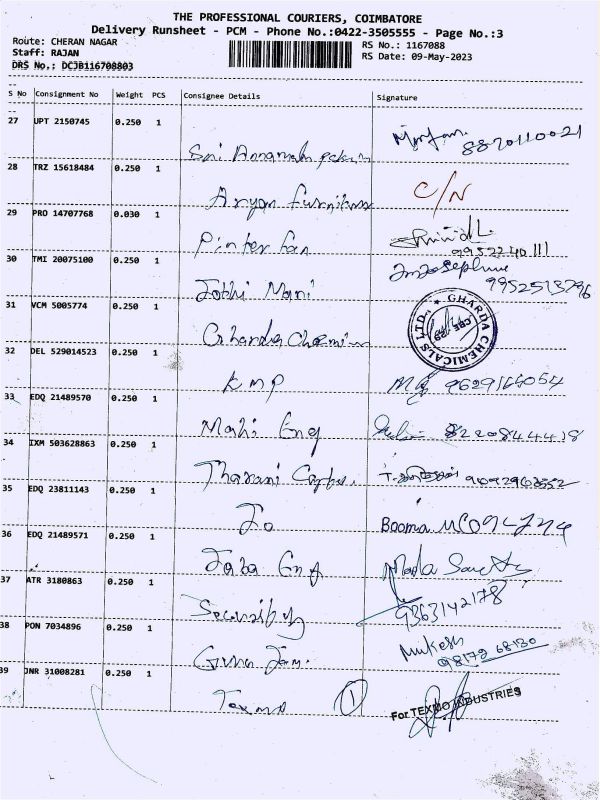 THE PROFESSIONAL COURIERS, COIMBATORE
Delivery Runsheet - PCM - Phone No.:0422-3505555 - Page No.:3
Route: CHERAN NAGAR
RS No.: 1167088
Staff: RAJAN
RS Date: 09-May-2023
DRS No.: DCJB116708803
S No Consignment No Weight PCS Consignee Details Signature
27 UPT 2150745 0.250 1
8870110021
Sri
28 TRZ 15618484 0.250 1
Aryan Furniture C/N
29 PRO 14707768 0.030 1
Pinter Fan
9952240111
30 TMI 20075100 0.250 1
Jothi Mani Josephine
9952513796
31 VCM 5005774 0.250 1
Gharda Chemi
GHARDA CHEMICALS LTD., CBE.
32 DEL 529014523 0.250 1
KMP
33 EDQ 21489570 0.250 1
Mahi Eng 8220844418
34 IXM 503628863 0.250 1
Tharani
35 EDQ 23811143 0.250 1
To Booma
36 EDQ 21489571 0.250 1
Jaba Eng Mala
37 ATR 3180863 0.250 1
Security 9363142178
38 PON 7034896 0.250 1
Guna Mukesh
98179 68130
39 JNR 31008281 0.250 1
Texmo 1 For TEXMO INDUSTRIES